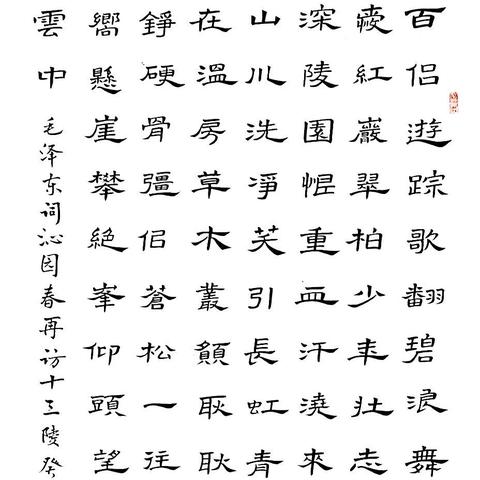 百侣遊踪歌翻碧浪舞
紅巖翠柏少年壯志
深陵園重血汗澆來
山川洗淨笑引長虹青
在溫房草木叢顏耿耿
錚硬骨彊侣蒼松一往
嚮懸崖攀絕峯仰頭望
雲中
毛泽东词沁园春再访十三陵癸